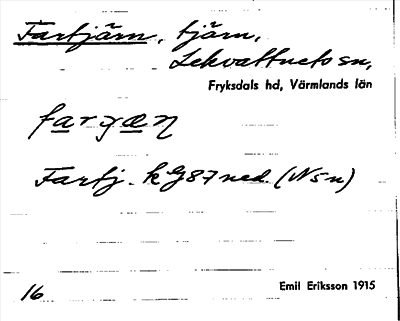 Fartjärn, tjärn,
Lekvattnets sn,
Fryksdals hd, Värmlands län
farɣæn
Fartj. kG87ned. (N sn)
16
Emil Eriksson 1915